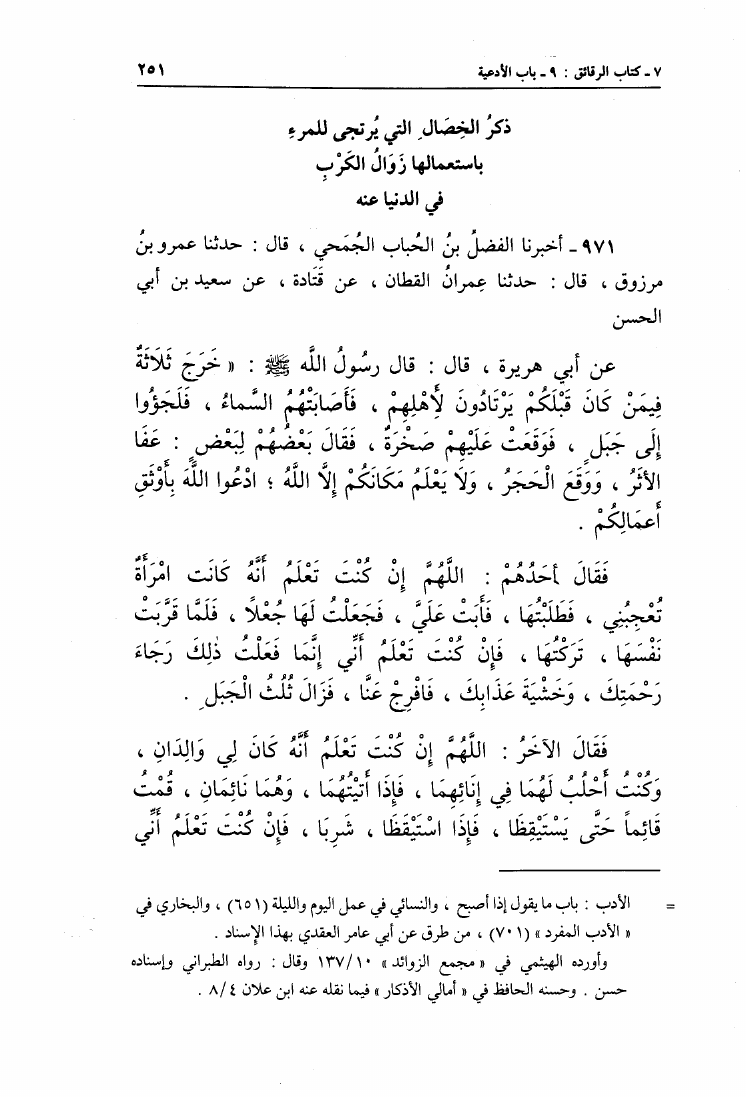 ٧ ـ كتاب الرقائق : ٩ ـ باب الأدعية ٢٥١
ذكرُ الخِصَالِ التي يُرتجى للمرءِ
باستعمالها زَوَالُ الكَرْبِ
في الدنيا عنه
٩٧١ ـ أخبرنا الفضلُ بنُ الحُباب الجُمَحي ، قال : حدثنا عمرو بنُ
مرزوق ، قال : حدثنا عِمرانُ القطان ، عن قَتَادة ، عن سعيد بن أبي
الحسن
عن أبي هريرة ، قال : قال رسُولُ اللَّه ﷺ : « خَرَجَ ثَلاَثَةٌ
فِيمَنْ كَانَ قَبْلَكُمْ يَرْتَادُونَ لِأَهْلِهِمْ ، فَأَصَابَتْهُمُ السَّماءُ ، فَلَجَؤُوا
إِلَى جَبَلٍ ، فَوَقَعَتْ عَلَيْهِمْ صَخْرَةٌ ، فَقَالَ بَعْضُهُمْ لِبَعْضٍ : عَفَا
الأثَرُ ، وَوَقَعَ الْحَجَرُ ، وَلَا يَعْلَمُ مَكَانَكُمْ إِلَّا اللَّهُ ؛ ادْعُوا اللَّهَ بِأَوْثَقِ
أَعمَالِكُمْ .
فَقَالَ أحَدُهُمْ : اللَّهُمَّ إِنْ كُنْتَ تَعْلَمُ أَنَّهُ كَانَت امْرَأَةٌ
تُعْجِبُنِي ، فَطَلَبْتُهَا ، فَأَبَتْ عَلَيَّ ، فَجَعَلْتُ لَهَا جُعْلاً ، فَلَمَّا قَرَّبَتْ
نَفْسَهَا ، تَرَكْتُهَا ، فَإِنْ كُنْتَ تَعْلَمُ أَنِّي إِنَّمَا فَعَلْتُ ذٰلِكَ رَجَاءَ
رَحْمَتِكَ ، وَخَشْيَةَ عَذَابِكَ ، فَافْرِجْ عَنَّا ، فَزَالَ ثُلُثُ الْجَبَلِ .
فَقَالَ الآخَرُ : اللَّهُمَّ إِنْ كُنْتَ تَعْلَمُ أَنَّهُ كَانَ لِي وَالِدَانِ ،
وَكُنْتُ أَحْلُبُ لَهُمَا فِي إِنَائِهِمَا ، فَإِذَا أَتَيْتُهُمَا ، وَهُمَا نَائِمَانِ ، قُمْتُ
قَائِماً حَتَّى يَسْتَيْقِظَا ، فَإِذَا اسْتَيْقَظَا ، شَرِبَا ، فَإِنْ كُنْتَ تَعْلَمُ أَنِّي
= الأدب : باب ما يقول إذا أصبح ، والنسائي في عمل اليوم والليلة (٦٥١) ، والبخاري في
« الأدب المفرد » (٧٠١) ، من طرق عن أبي عامر العقدي بهذا الإِسناد .
وأورده الهيثمي في « مجمع الزوائد » ١٣٧/١٠ وقال : رواه الطبراني وإسناده
حسن . وحسنه الحافظ في « أمالي الأذكار » فيما نقله عنه ابن علان ٨/٤ .